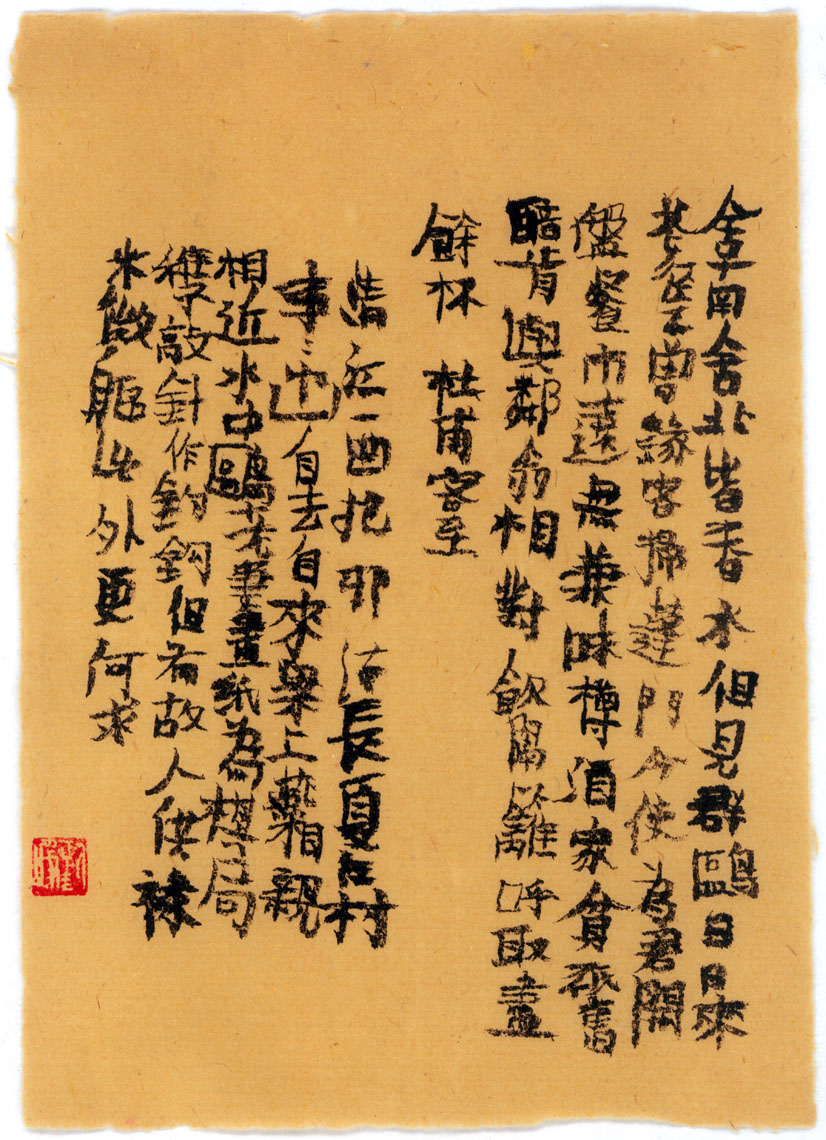 舍南舍北皆春水但見群鷗日日來
花徑不曾緣客掃蓬門今使為君開
盤餐市遠無兼味樽酒家貧秖舊
醅肯與鄰翁相對飲隔籬呼取盡
餘杯 杜甫客至
清江一曲抱邨流長夏江村
事事幽自去自來梁上燕相親
相近水中鷗老妻畫紙為棋局
稚子敲針作釣鈎但有故人供祿
米微軀此外更何求